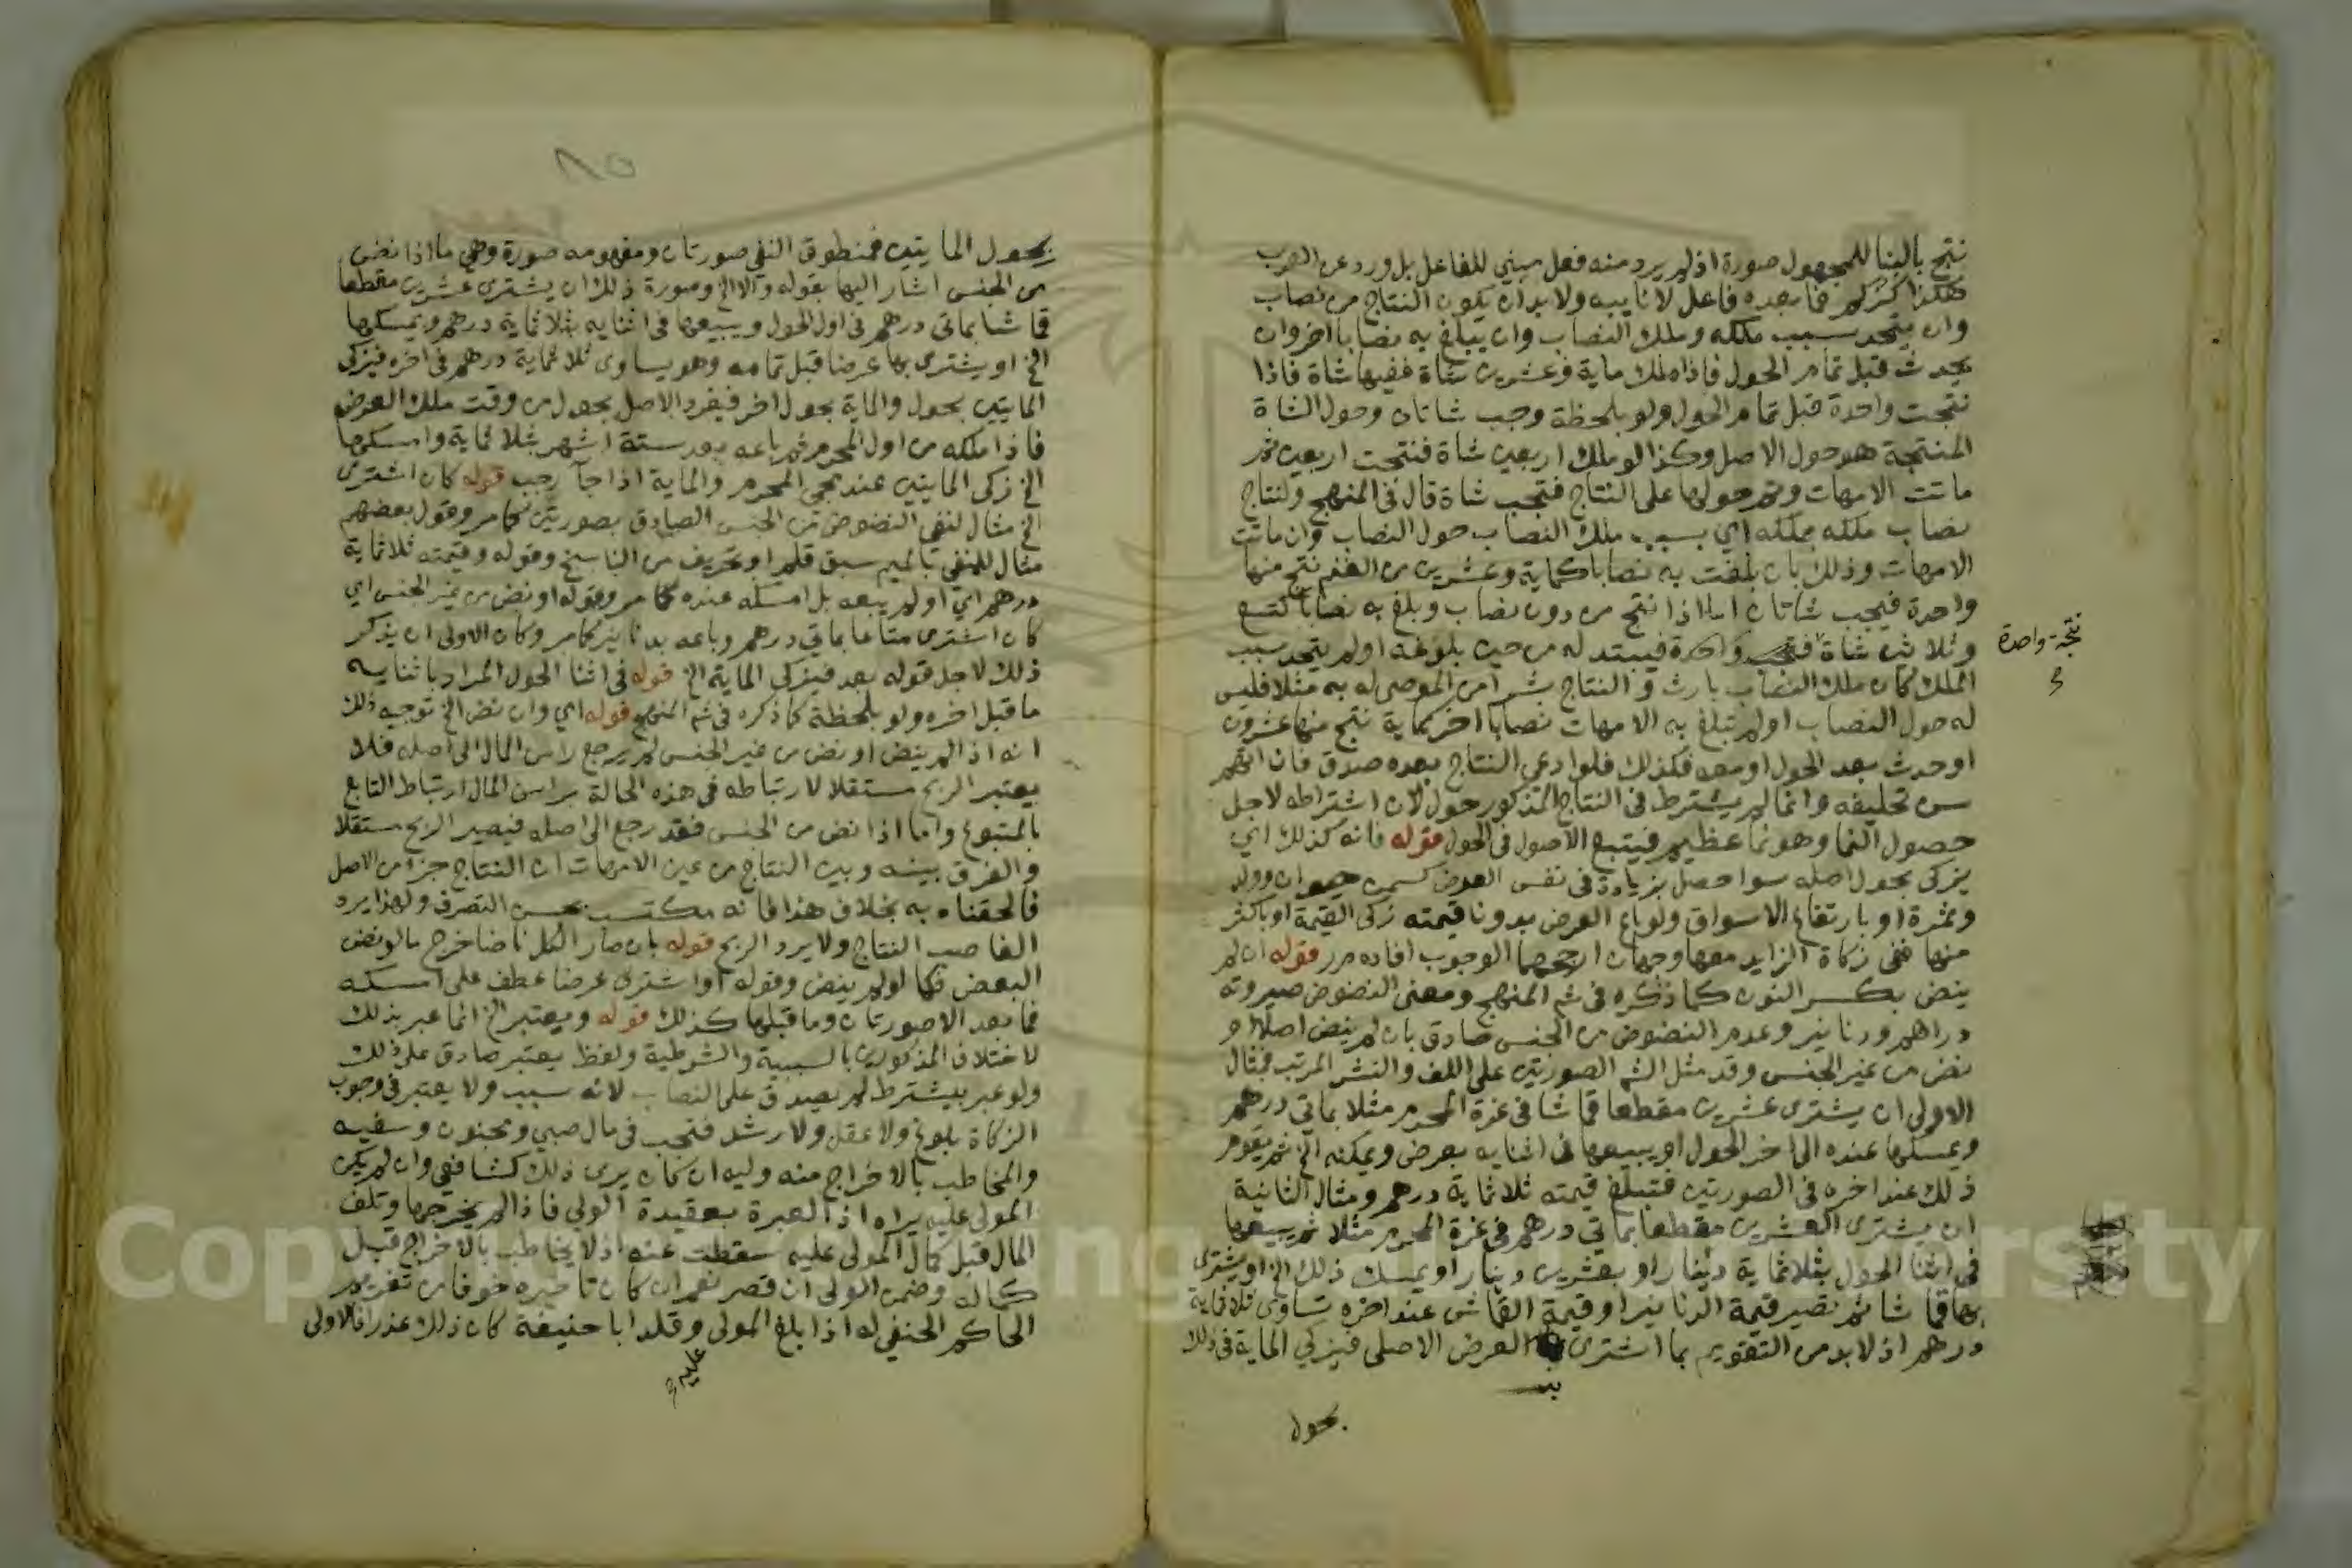 نتج بالبنا للمجهول صورة اذ لم يرد منه فعل مبني للفاعل بل ورد عن العرب
هكذا فما بعده فاعل لا نايبه ولا بد ان يكون النتاج من نصاب
وان يتحد سبب ملكه وملك النصاب وان يبلغ به نصابا اخر وان
يحدث قبل تمام الحول فاذا ملك ماية وعشرين شاة ففيها شاة فاذا
نتجت واحدة قبل تمام الحول ولو بلحظة وجب شاتان وحول الشاة
المنتجة هو حول الاصل وكذا لو ملك اربعين شاة فنتجت اربعين ثم
ماتت الامهات وتم حولها على النتاج فتجب شاة قال في المنهج ولنتاج
نصاب ملكه بملكه اي بسبب ملك النصاب حول النصاب وان ماتت
الامهات وذلك بان بلغت به نصابا كماية وعشرين من الغنم نتج منها
واحدة فيجب شاتان اما اذا نتج من دون نصاب وبلغ به نصابا كتسع
وثلاثين شاة فيبتدا له من حين بلوغه او لم يتحد سبب
نتجت واحدة
الملك كان ملك النصاب بارث و النتاج بشرا من الموصى له به مثلا فليس
له حول النصاب او لم تبلغ به الامهات نصابا اخر كماية نتج منها عشرون
او حدث بعد الحول او معه فكذلك فلو ادعى النتاج بعده صدق فان اتهم
سن تحليفه وانما لم يشترط في النتاج المذكور حول لان اشتراطه لاجل
حصول النما وهو نما عظيم فيتبع الاصول في الحول قوله فانه كذلك اي
يزكى بحول اصله سوا حصل بزيادة في نفس العرض كسمن حيوان وولد
وثمرة او بارتفاع الاسواق ولو باع العرض بدون قيمته زكى القيمة او باكثر
منها ففي زكاة الزايد معها وجهان ارجحهما الوجوب افاده م ر قوله ان لم
ينض بكسر النون كما ذكره في شم المنهج ومعنى النضوض صيرورته
دراهم ودنانير وعدم النضوض من الجنس صادق بان لم ينض اصلا او
نض من غير الجنس وقد مثل الشم الصورتين على اللف والنشر المرتب فمثال
الاولى ان يشترى عشرين مقطعا قماشا في غرة المحرم مثلا بماتي درهم
ويمسكها عنده الى اخر الحول او يبيعها في اثنايه بعرض ويمكنه الخ ثم يقوم
ذلك عند اخره في الصورتين فتبلغ قيمته ثلاثماية درهم ومثال الثانية
ان يشترى العشرين مقطعا بماتي درهم في غرة المحرم مثلا ثم يبيعها
في اثنا الحول بثلاثماية دينار او بعشرين دينارا ويمسك ذلك الخ او يشترى
بها قماشا ثم تصير قيمة الدنانير او قيمة القماش عند اخره تساوى ثلاثماية
درهم اذ لا بد من التقويم بما اشترى به العرض الاصلى فيزكي الماية في ذلك
بحول
٨٥
بحول المايتين فمنطوق النفي صورتان ومفهومه صورة وهي ما اذا نض
من الجنس اشار اليها بقوله والا الخ وصورة ذلك ان يشترى عشرين مقطعا
قماشا بماتي درهم في اول الحول ويبيعها في اثنايه بثلاثماية درهم ويمسكها
الخ او يشترى بها عرضا قبل تمامه وهو يساوى ثلاثماية درهم في اخره فيزكى
المايتين بحول والماية بحول اخر فيفرد الاصل بحول من وقت ملك العرض
فاذا ملكه من اول المحرم ثم باعه بعد ستة اشهر بثلاثماية وامسكها
الخ زكى المايتين عند مجي المحرم والماية اذا جا رجب قوله كان اشترى
الخ مثال لنفي النضوض من الجنس الصادق بصورتين كما مر وقول بعضهم
مثال للمنفي بالميم سبق قلم او تحريف من الناسخ وقوله وقيمته ثلاثماية
درهم اي او لم يبعه بل امسكه عنده كما مر وقوله او نض من غير الجنس اي
كان اشترى متاعا بماتي درهم وباعه بدنانير كما مر وكان الاولى ان يذكر
ذلك لاجل قوله بعد فيزكى الماية الخ قوله في اثنا الحول المراد باثنايه
ما قبل اخره ولو بلحظة كما ذكره في شم المنهج قوله اي وان نض الخ توجيه ذلك
انه اذا لم ينض او نض من غير الجنس لم يرجع راس المال الى اصله فلا
يعتبر الربح مستقلا لارتباطه في هذه الحالة براس المال ارتباط التابع
بالمتبوع واما اذا نض من الجنس فقد رجع الى اصله فيصير الربح مستقلا
والفرق بينه وبين النتاج من عين الامهات ان النتاج جزء من الاصل
فالحقناه به بخلاف هذا فانه مكتسب بحسن التصرف ولهذا يرد
الغاصب النتاج ولا يرد الربح قوله بان صار الكل ناضا خرج ما لو نض
البعض فكما لو لم ينض وقوله او اشترى عرضا عطف على امسكه
فما بعد الا صورتان وما قبلها كذلك قوله ويعتبر الخ انما عبر بذلك
لاختلاف المذكورين بالسببية والشرطية ولفظ يعتبر صادق على ذلك
ولو عبر بيشترط لم يصدق على النصاب لانه سبب ولا يعتبر في وجوب
الزكاة بلوغ ولا عقل ولا رشد فتجب في مال صبي ومجنون وسفيه
والمخاطب بالاخراج منه وليه ان كان يرى ذلك كشافعي وان لم يكن
المولى عليه يراه اذ العبرة بعقيدة الولي فاذا لم يخرجها وتلف
المال قبل كمال المولى عليه سقطت عنه اذ لا يخاطب بالاخراج قبل
كماله وضمن الولى ان قصر نعم ان كان تاخيره خوفا من تغريم
الحاكم الحنفي له اذا بلغ المولى وقلد ابا حنيفة كان ذلك عذرا فالاولى
عليه